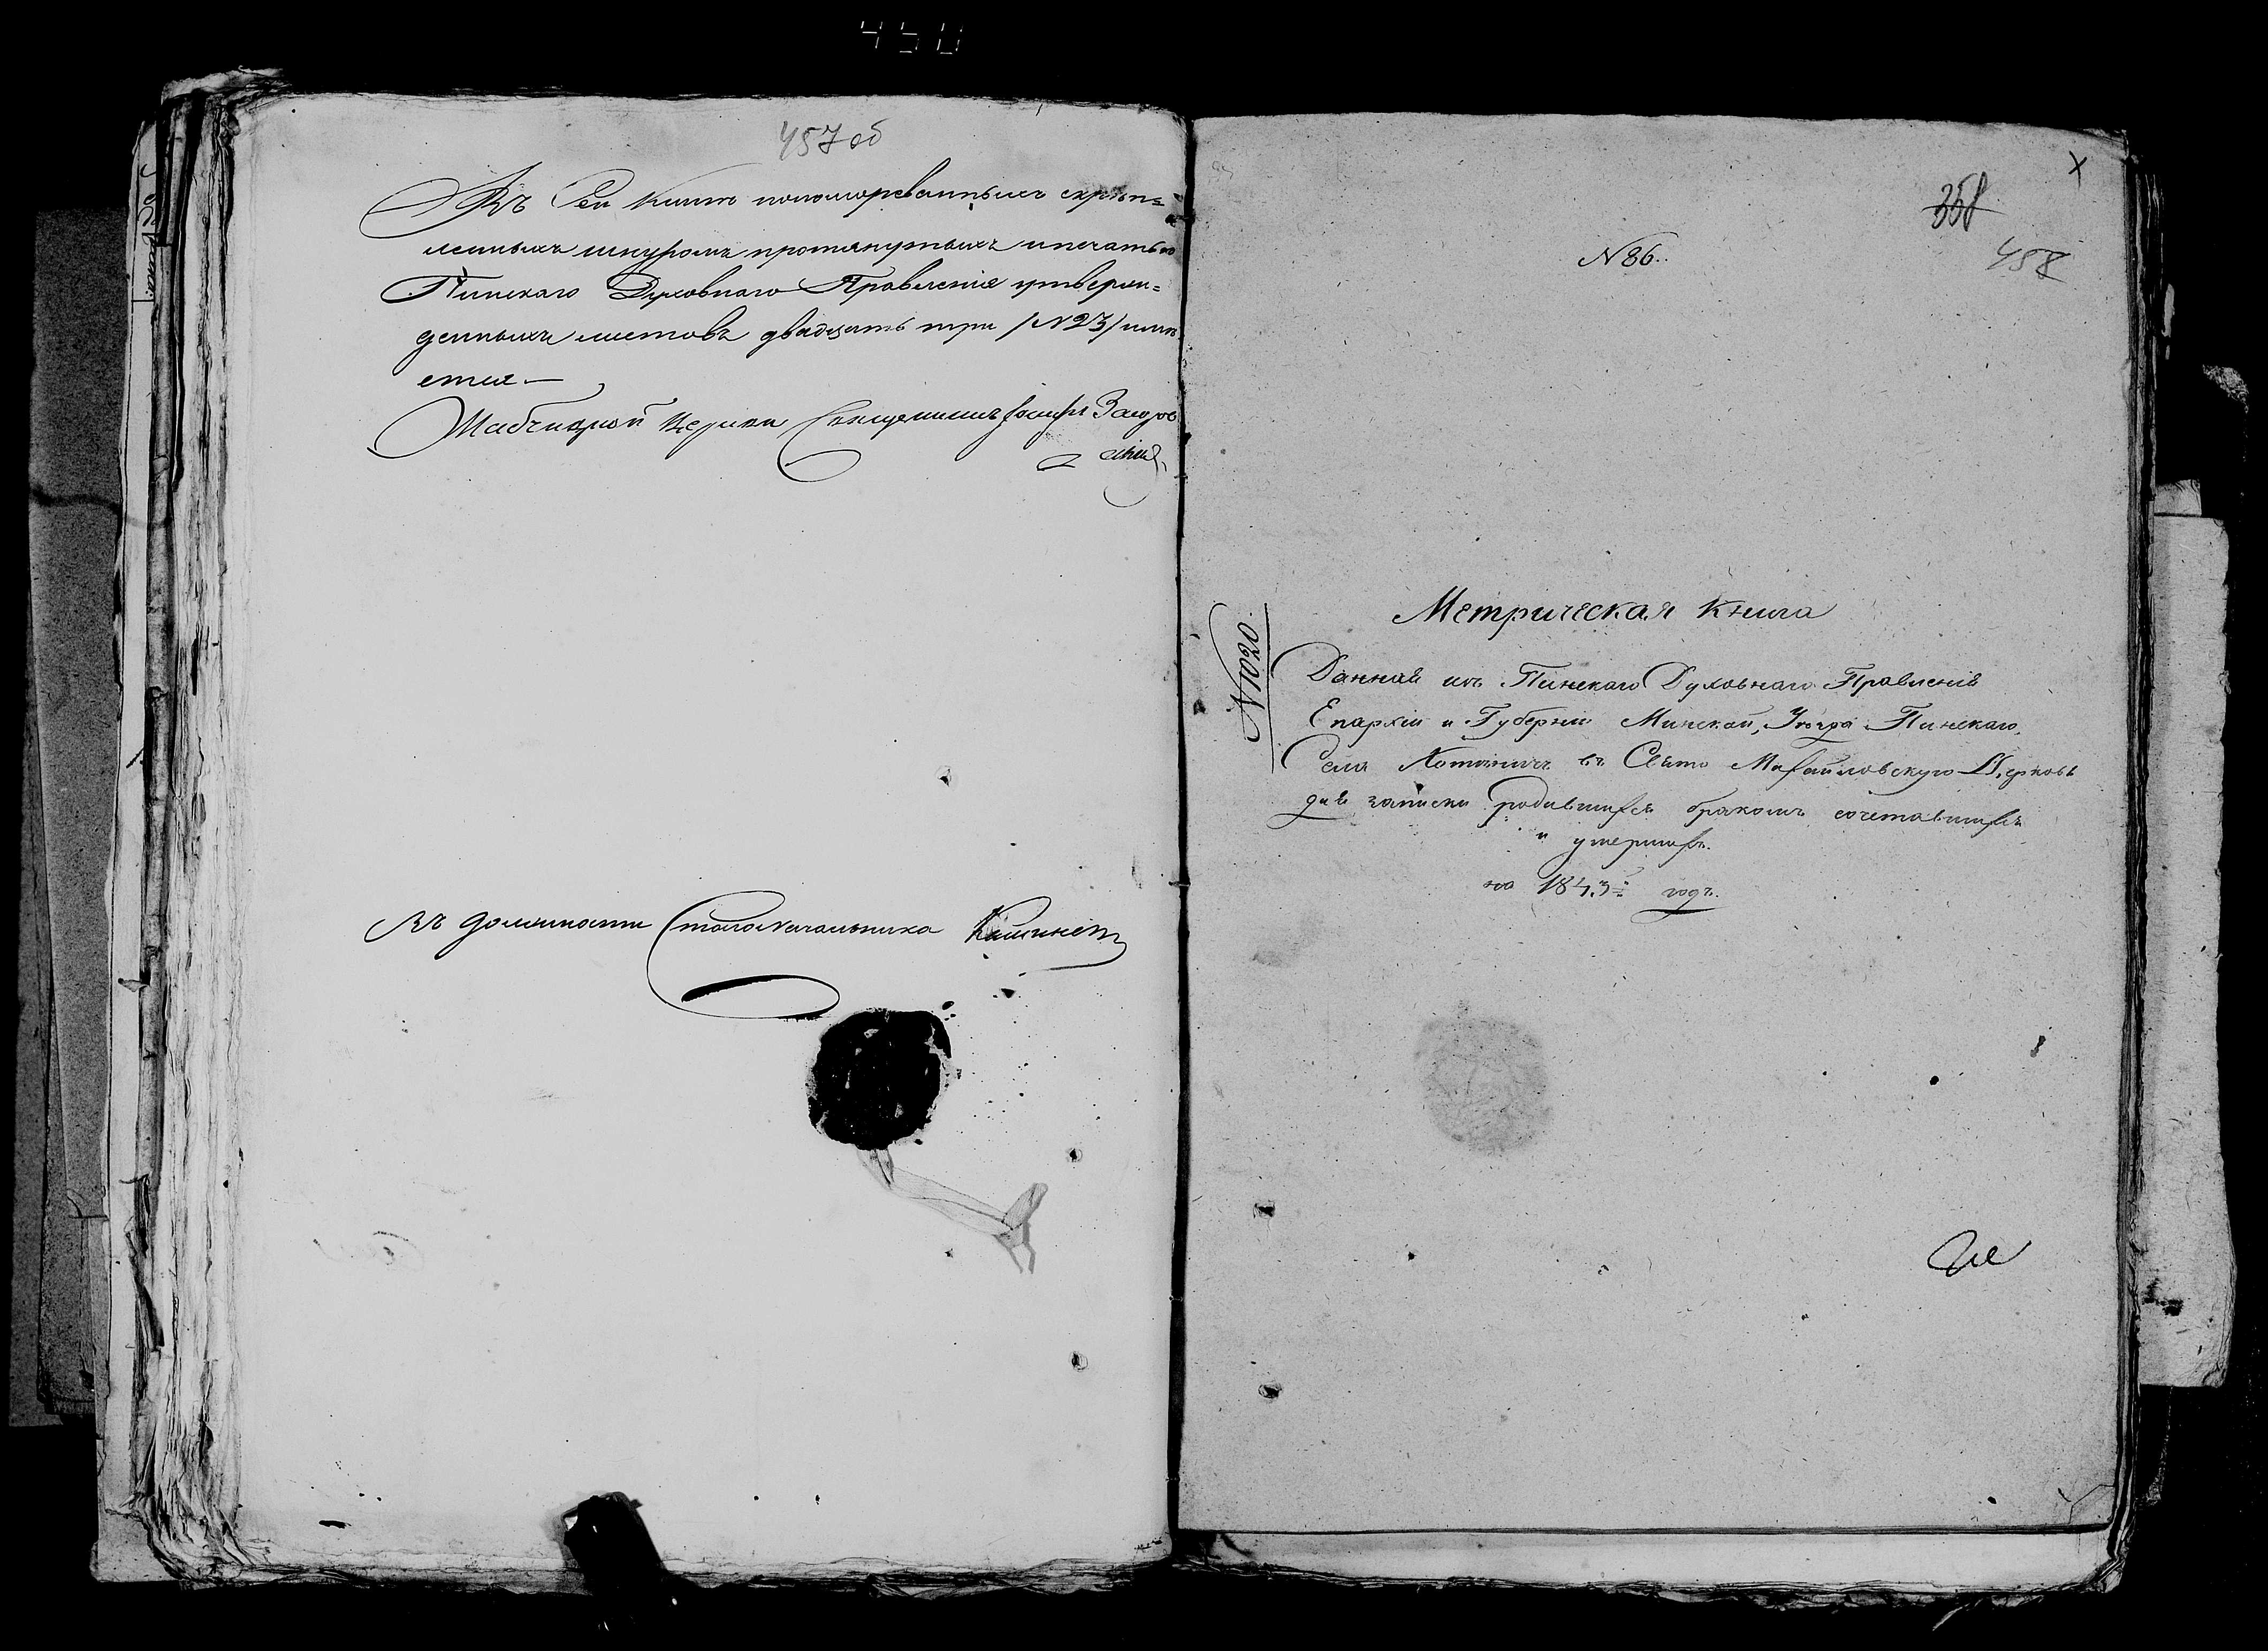 450
457 об
Въ Сей Книгѣ нономерованныхъ скрѣп=
ленныхъ шнуромъ протянутыхъ и печатью
Пинскаго Духовнаго Правленія утверж=
денныхъ листовъ двадцать три /№ 23/ имѣ
ется —
Церкви Священникъ Іосифъ
Въ должности Столоначальника
358
458
№ 86.
№ 1020.
Метрическая Книга
Данная изъ Пинскаго Духовнаго Правленія
Епархіи и Губерніи Минской, Уѣзда Пинскаго,
Села Хотыничъ въ Свято Михайловскую Церковь
для записки родившихся бракомъ сочетавшихся
и умершихъ.
на 1843й годъ.